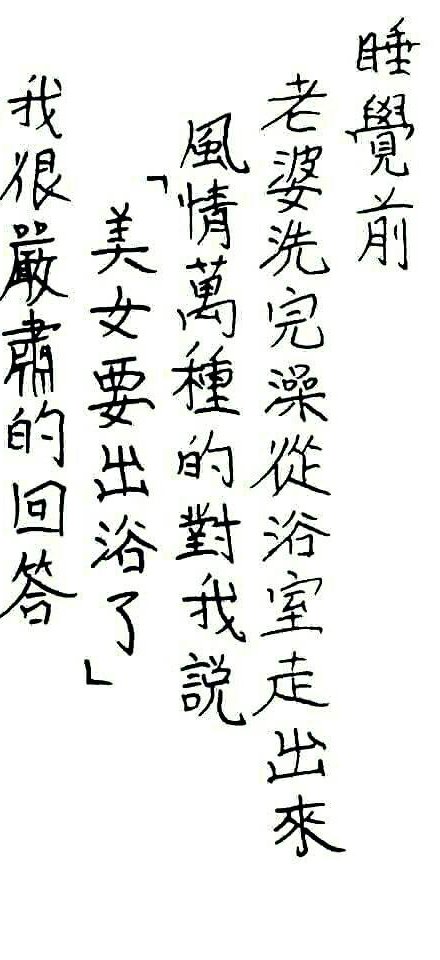 睡覺前
老婆洗完澡從浴室走出來
風情萬種的對我說
「美女要出浴了」
我很嚴肅的回答